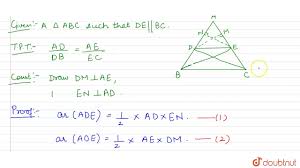 Given:- A △ABC such that DE||BC.
T.P.T.- AD/DB = AE/EC
Const:- Draw DM⊥AE,
1 EN⊥AD
Proof:-
ar (ADE) = 1/2 × AD × EN. —(1)
ar (AOE) = 1/2 × AE × DM. —(2)
M
N
D
E
B
C
doubtnut